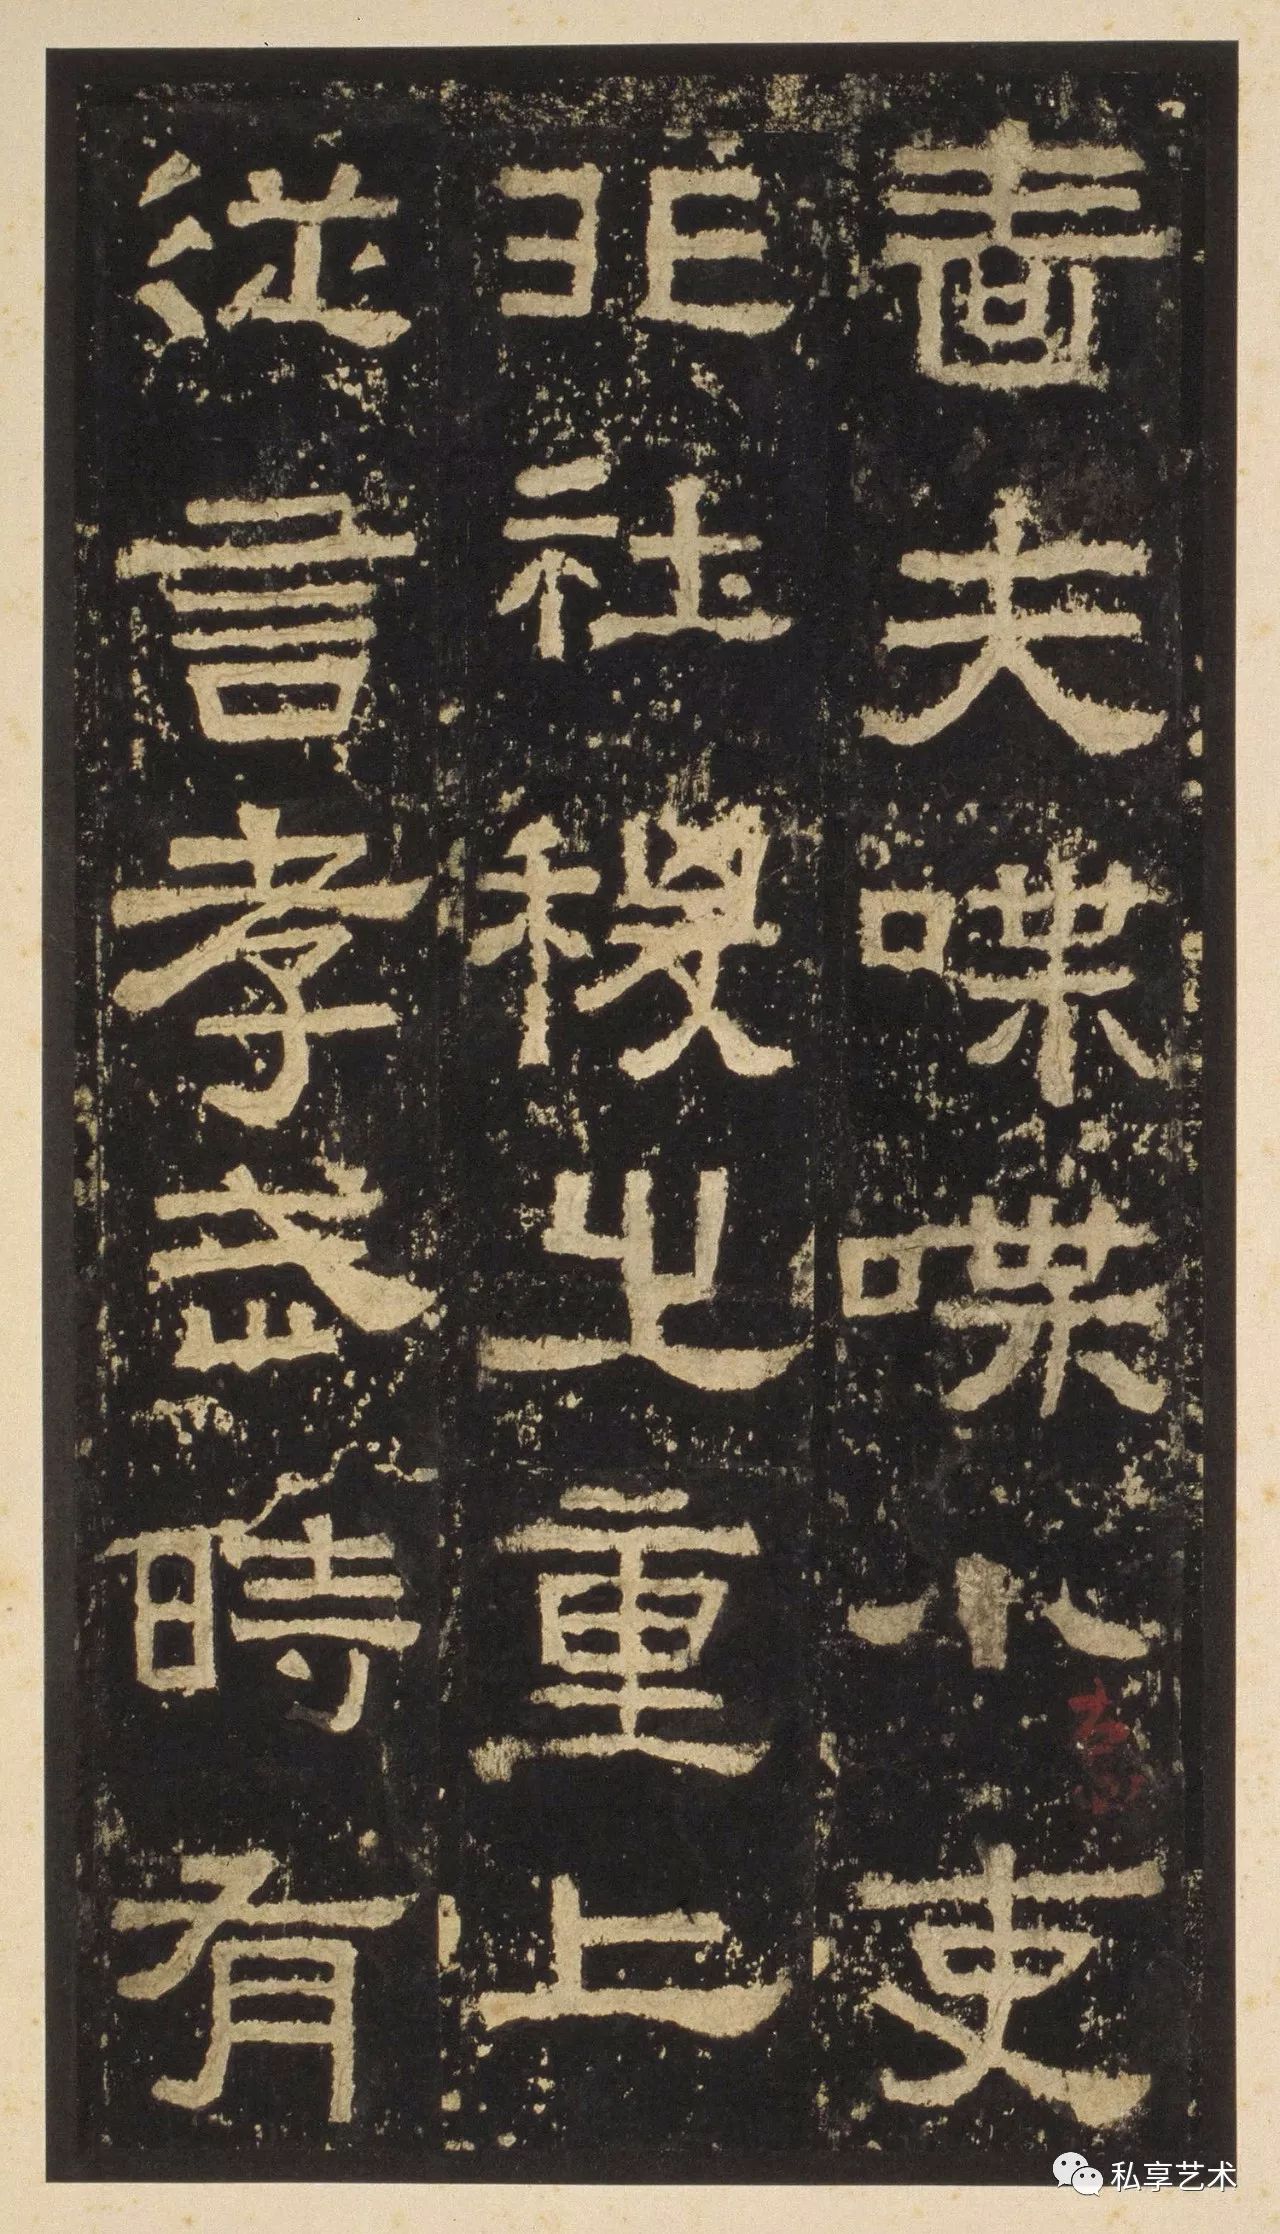 嗇夫喋喋小吏
非社稷之重上
從言孝武時有
私享艺术